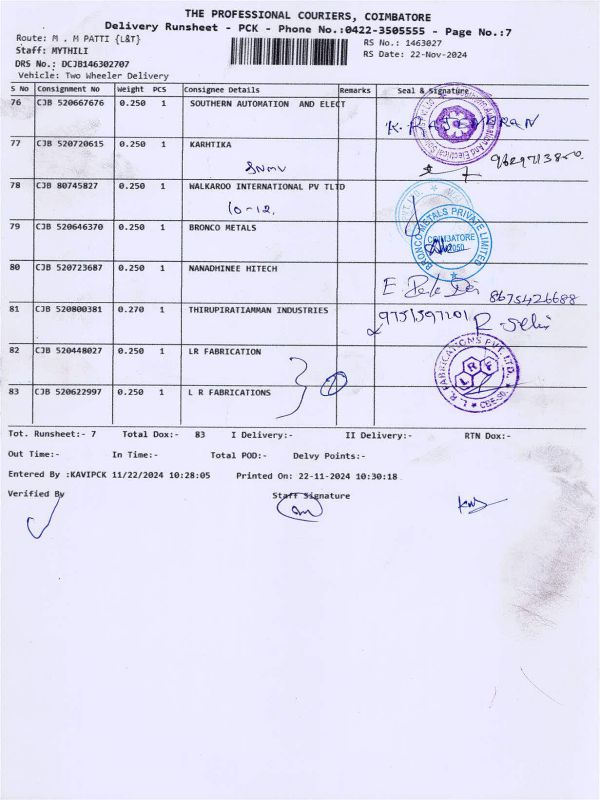 THE PROFESSIONAL COURIERS, COIMBATORE
Delivery Runsheet - PCK - Phone No.:0422-3505555 - Page No.:7
Route: M . M PATTI {L&T}
RS No.: 1463027
Staff: MYTHILI
RS Date: 22-Nov-2024
DRS No.: DCJB146302707
Vehicle: Two Wheeler Delivery
S No Consignment No Weight PCS Consignee Details Remarks Seal & Signature
76 CJB 520667676 0.250 1 SOUTHERN AUTOMATION AND ELECT
77 CJB 520720615 0.250 1 KARHTIKA
78 CJB 80745827 0.250 1 WALKAROO INTERNATIONAL PV TLTD
10-12.
79 CJB 520646370 0.250 1 BRONCO METALS
BRONCO METALS PRIVATE LIMITED
COIMBATORE
80 CJB 520723687 0.250 1 NANADHINEE HITECH
8675426688
81 CJB 520800381 0.270 1 THIRUPIRATIAMMAN INDUSTRIES
9751597201
82 CJB 520448027 0.250 1 LR FABRICATION
FABRICATIONS PVT. LTD.
LRF
83 CJB 520622997 0.250 1 L R FABRICATIONS
Tot. Runsheet:- 7 Total Dox:- 83 I Delivery:- II Delivery:- RTN Dox:-
Out Time:- In Time:- Total POD:- Delvy Points:-
Entered By :KAVIPCK 11/22/2024 10:28:05 Printed On: 22-11-2024 10:30:18
Verified By Staff Signature